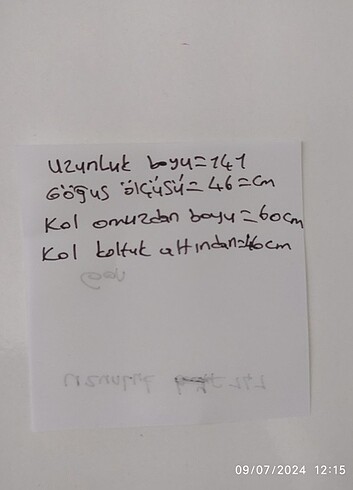 Uzunluk boyu=141
Göğüs ölçüsü=46=cm
Kol omuzdan boyu=60cm
Kol koltuk altından=46cm
09/07/2024 12:15